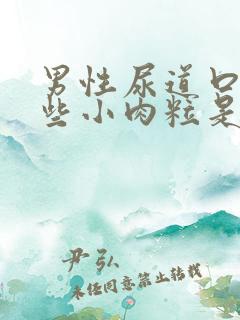 男性尿道口
些小肉粒是
尹弘
未经同意禁止转载